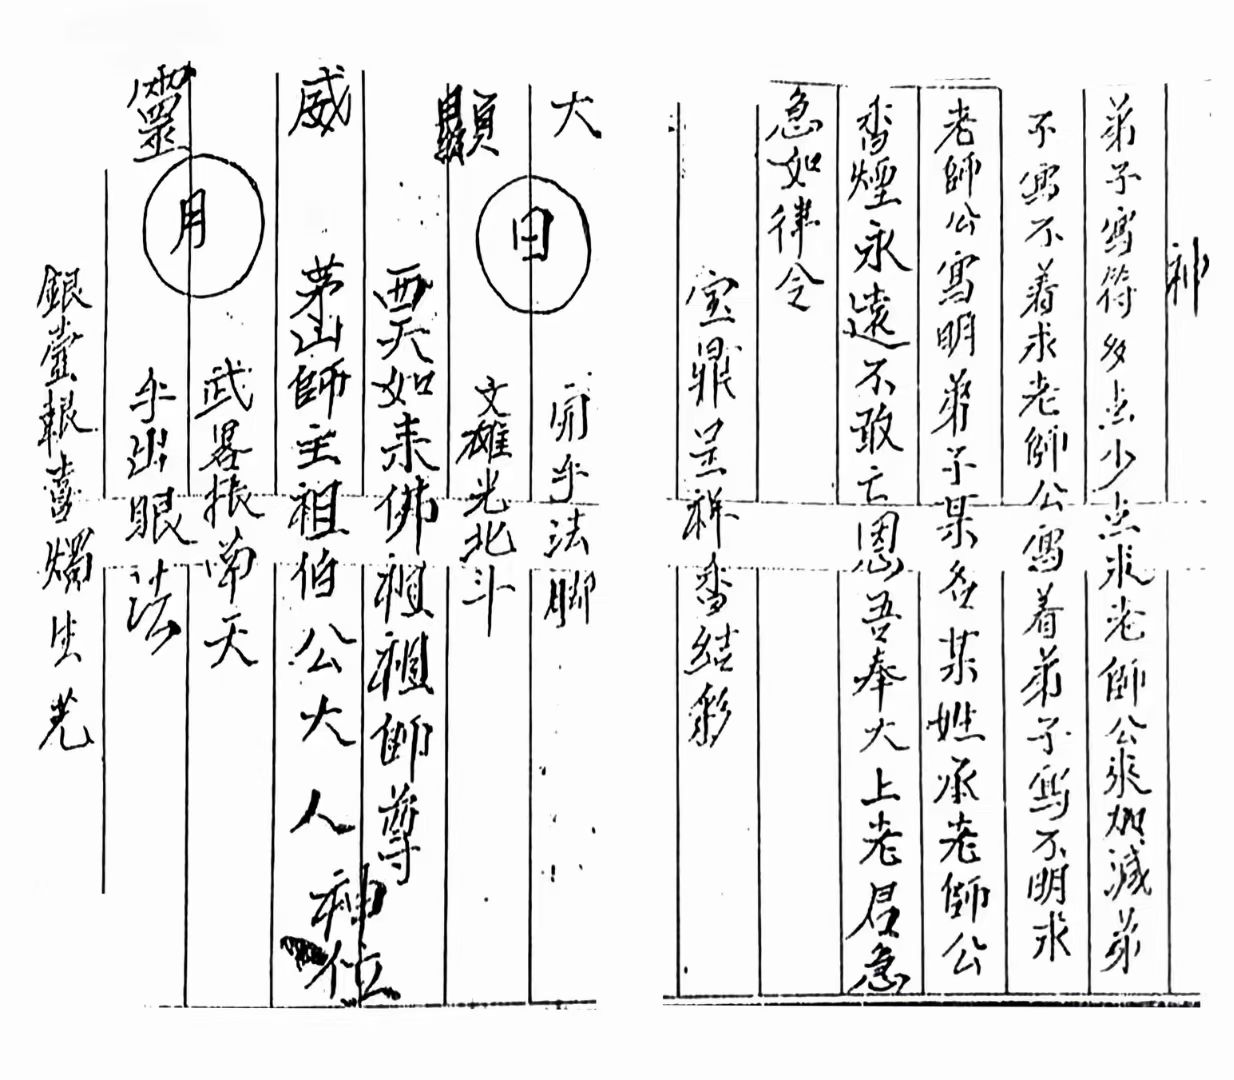 神
弟子寫符多点少点求老師公來加減弟
不寫不着求老師公寫着弟子寫不明求
老師公寫明弟子某名某姓承老師公
香煙永遠不敢亡恩吾奉大上老君急
急如律令
宝鼎呈祥香結彩
大顯威靈
日
開手法腳
文雄光北斗
西天如来佛祖祖師尊
茅山師主祖伯公大人神位
月
武畧振南天
手出眼法
銀臺報喜燭生光